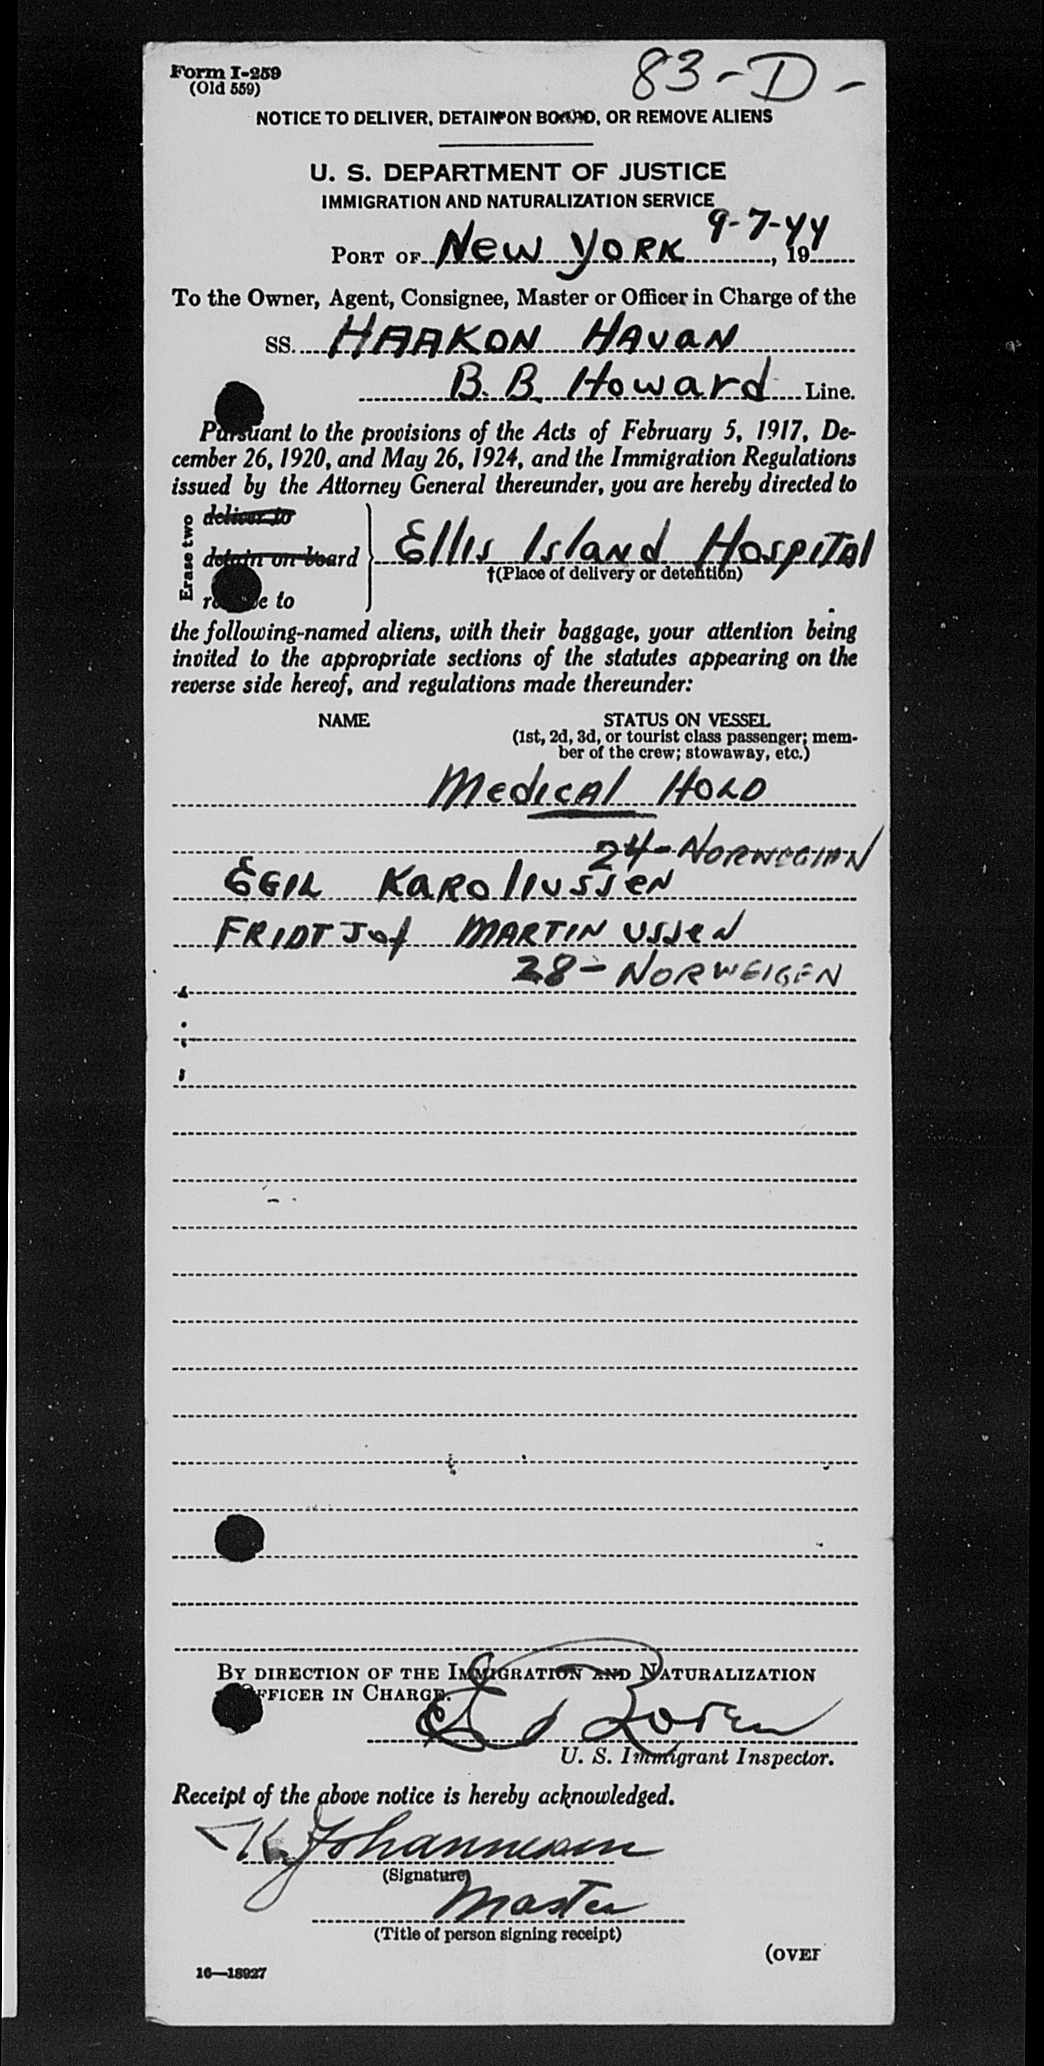 Form I-259
(Old 559)
83-D-
NOTICE TO DELIVER, DETAIN ON BOARD, OR REMOVE ALIENS
U. S. DEPARTMENT OF JUSTICE
IMMIGRATION AND NATURALIZATION SERVICE
PORT OF New York 9-7-44, 19
To the Owner, Agent, Consignee, Master or Officer in Charge of the
SS. HAAKON HAVAN
B. B. Howard Line.
Pursuant to the provisions of the Acts of February 5, 1917, De-
cember 26, 1920, and May 26, 1924, and the Immigration Regulations
issued by the Attorney General thereunder, you are hereby directed to
Erase two
deliver to
detain on board
Ellis Island Hospital
†(Place of delivery or detention)
remove to
the following-named aliens, with their baggage, your attention being
invited to the appropriate sections of the statutes appearing on the
reverse side hereof, and regulations made thereunder:
NAME STATUS ON VESSEL
(1st, 2d, 3d, or tourist class passenger; mem-
ber of the crew; stowaway, etc.)
Medical Hold
24-NORWEGIAN
EGIL Karoliussen
FRIDTJof MARTINussen
28-NORWEIGEN
BY DIRECTION OF THE IMMIGRATION AND NATURALIZATION
OFFICER IN CHARGE.
U. S. Immigrant Inspector.
Receipt of the above notice is hereby acknowledged.
K. Johannessen
(Signature)
Master
(Title of person signing receipt)
(OVER
16—18927